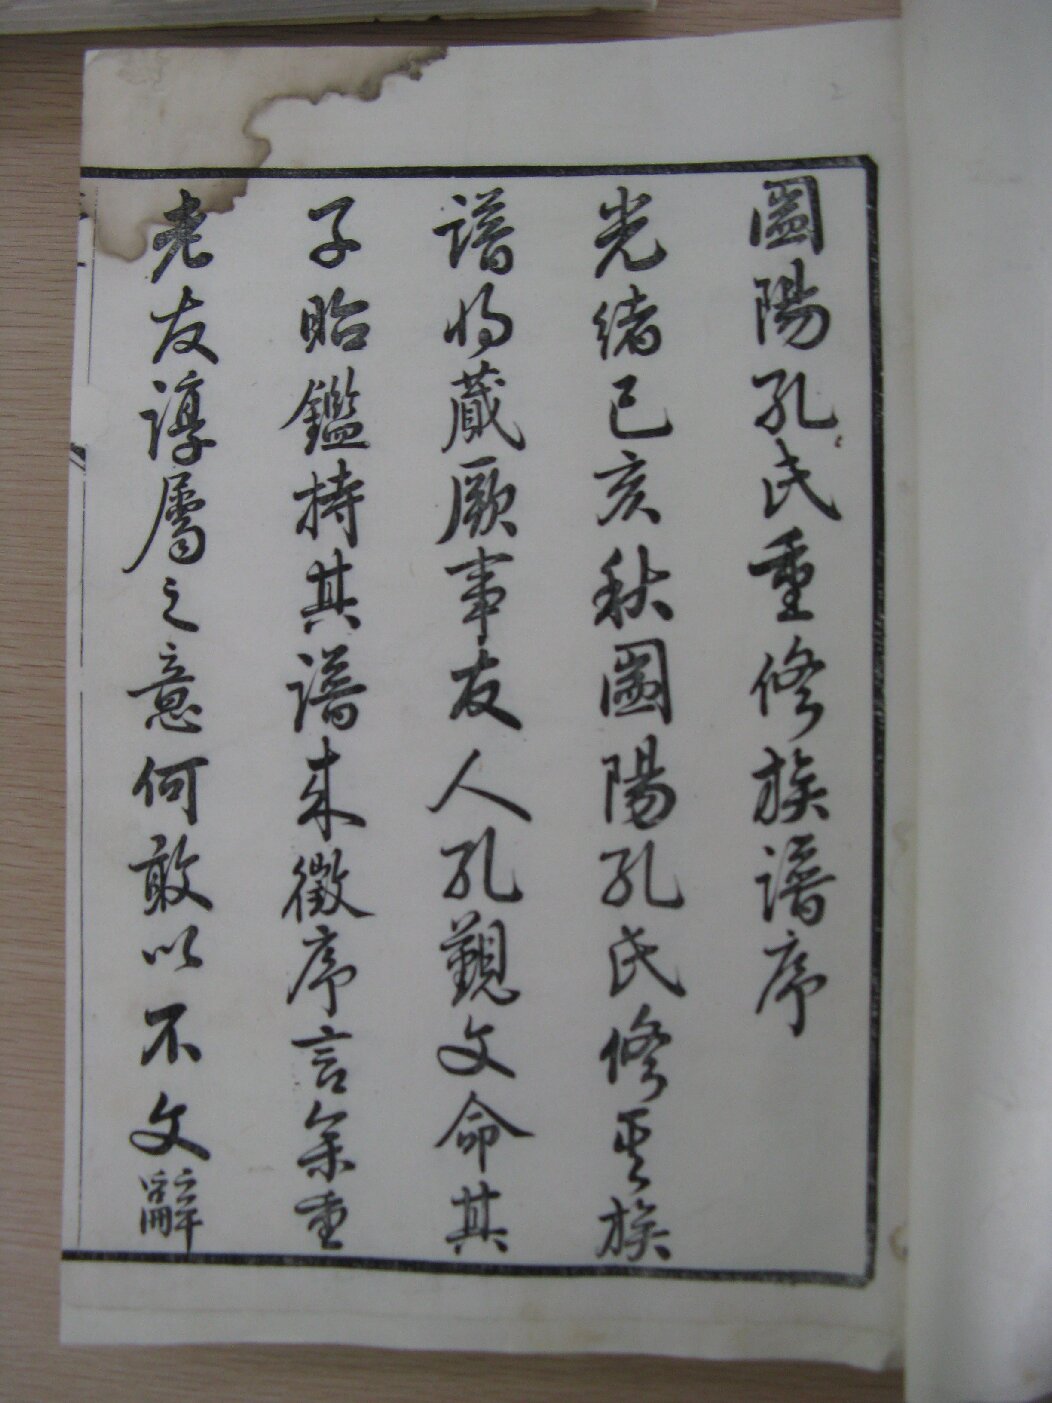 圌陽孔氏重修族譜序
光緒己亥秋圌陽孔氏修其族
譜將蕆厥事友人孔覲文命其
子貽鑑持其譜來徵序言余重
老友諄屬之意何敢以不文辭